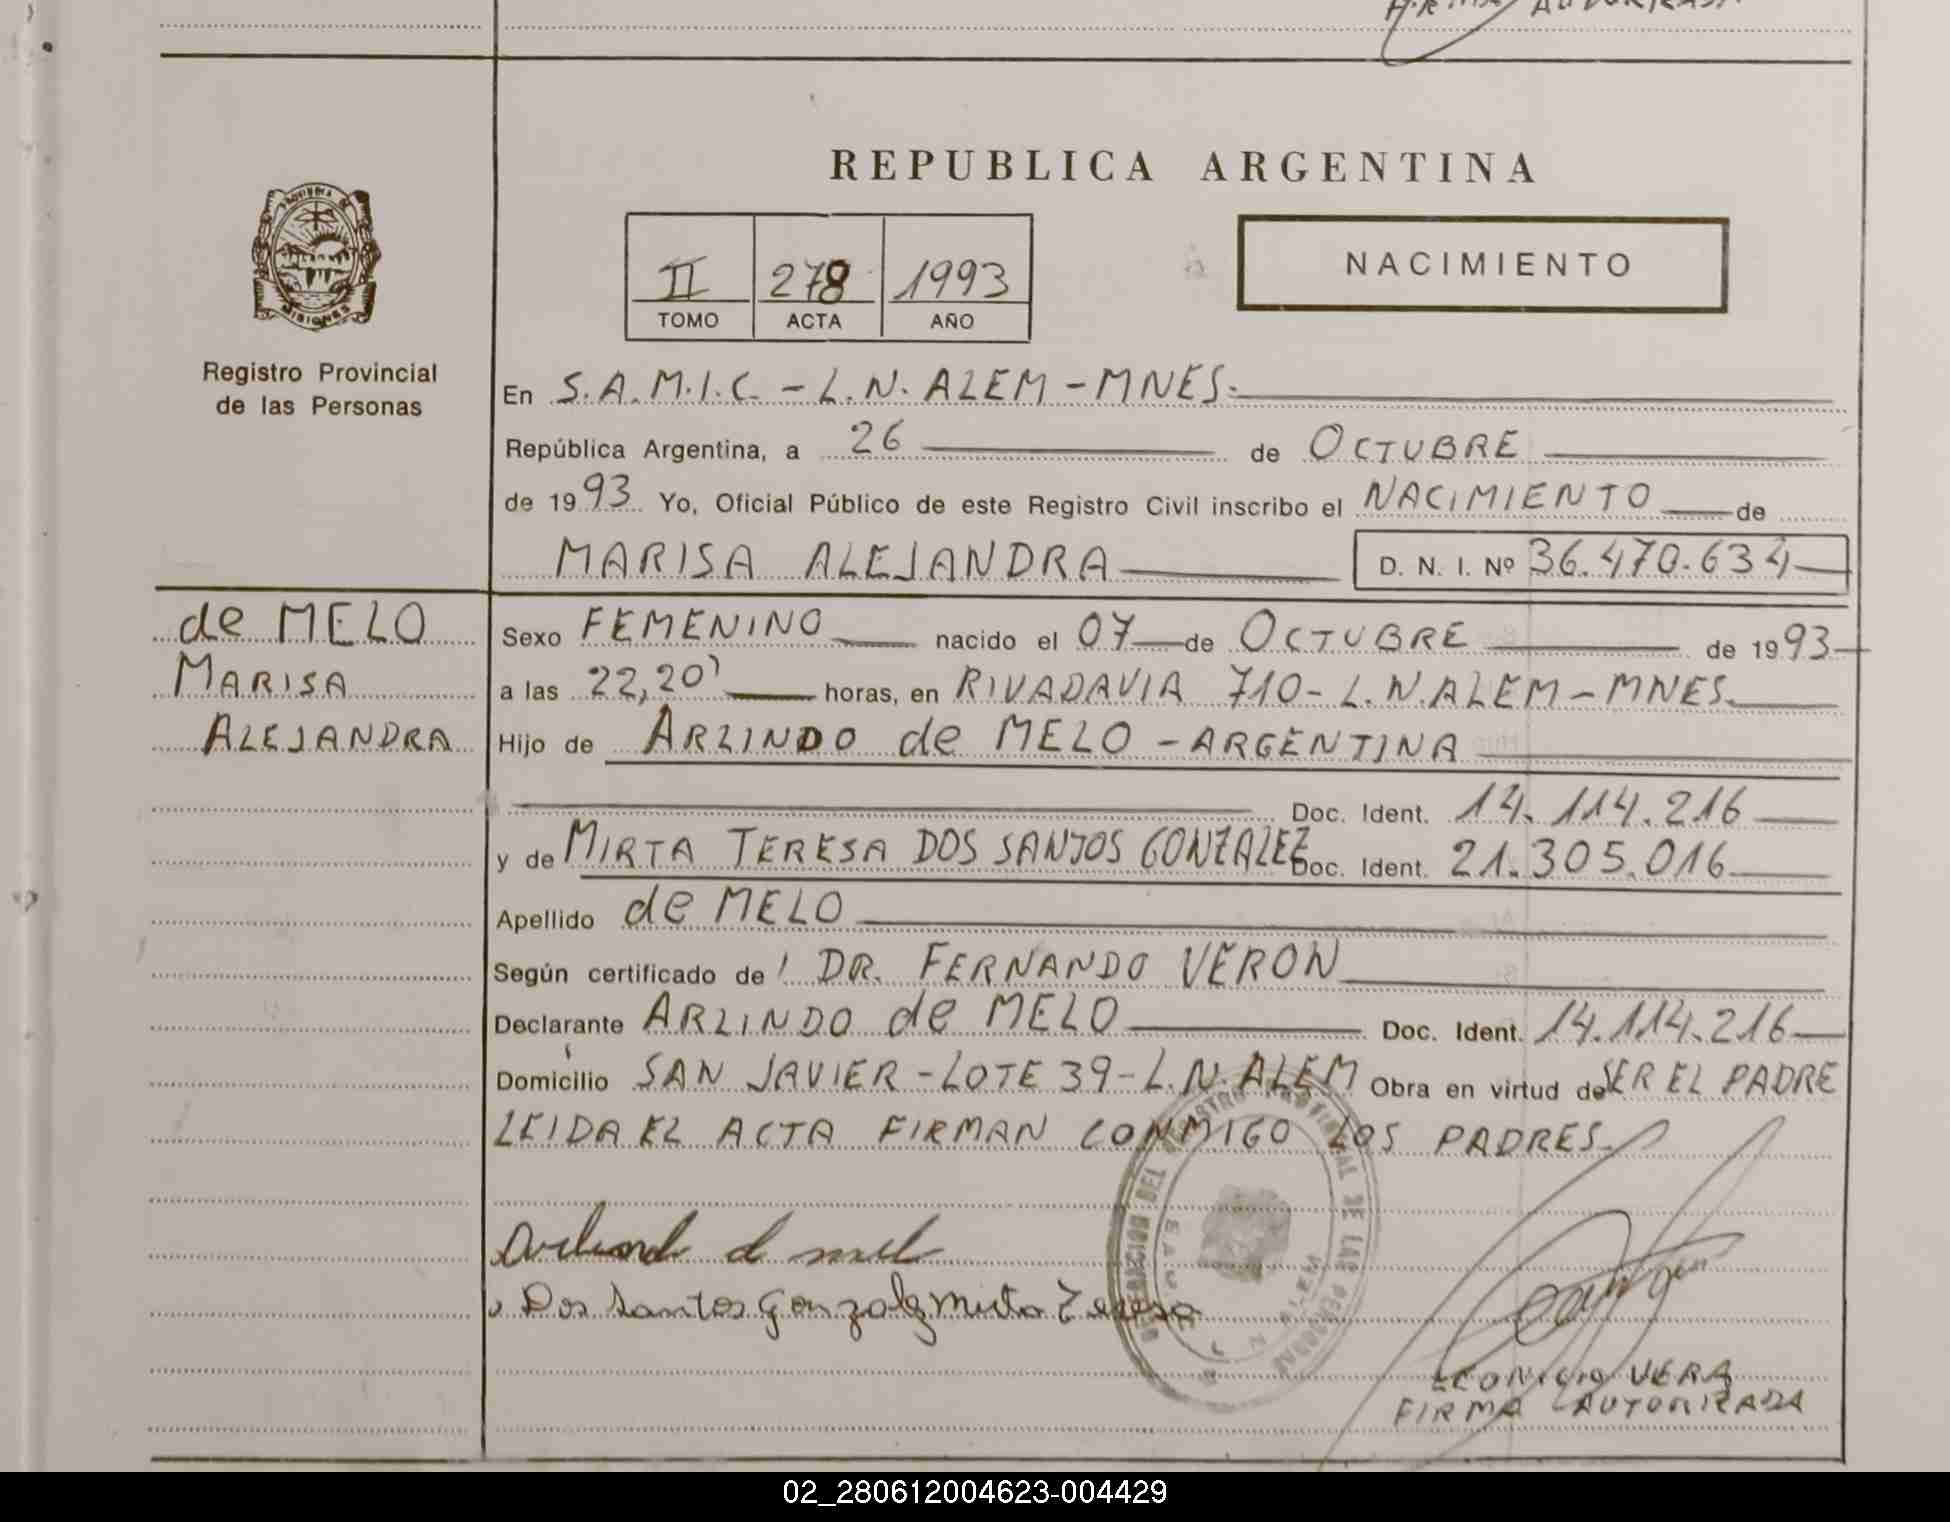 FIRMA AUTORIZADA
REPUBLICA ARGENTINA
II 278 1993
TOMO ACTA AÑO
NACIMIENTO
PROVINCIA DE MISIONES
Registro Provincial
de las Personas
En S.A.M.I.C. - L.N. ALEM - MNES.
República Argentina, a 26 de OCTUBRE
de 1993 Yo, Oficial Público de este Registro Civil inscribo el NACIMIENTO de
MARISA ALEJANDRA D. N. I. Nº 36.470.634
de MELO
MARISA
ALEJANDRA
Sexo FEMENINO nacido el 07 de OCTUBRE de 1993
a las 22,20' horas, en RIVADAVIA 710 - L.N. ALEM - MNES.
Hijo de ARLINDO de MELO - ARGENTINA
Doc. Ident. 14.114.216
y de MIRTA TERESA DOS SANTOS GONZALEZ Doc. Ident. 21.305.016
Apellido de MELO
Según certificado de DR. FERNANDO VERON
Declarante ARLINDO de MELO Doc. Ident. 14.114.216
Domicilio SAN JAVIER - LOTE 39 - L.N. ALEM Obra en virtud de SER EL PADRE
LEIDA EL ACTA FIRMAN CONMIGO LOS PADRES
Arlindo de melo
Dos Santos Gonzalez Mirta Teresa
VERA
FIRMA AUTORIZADA
02_280612004623-004429